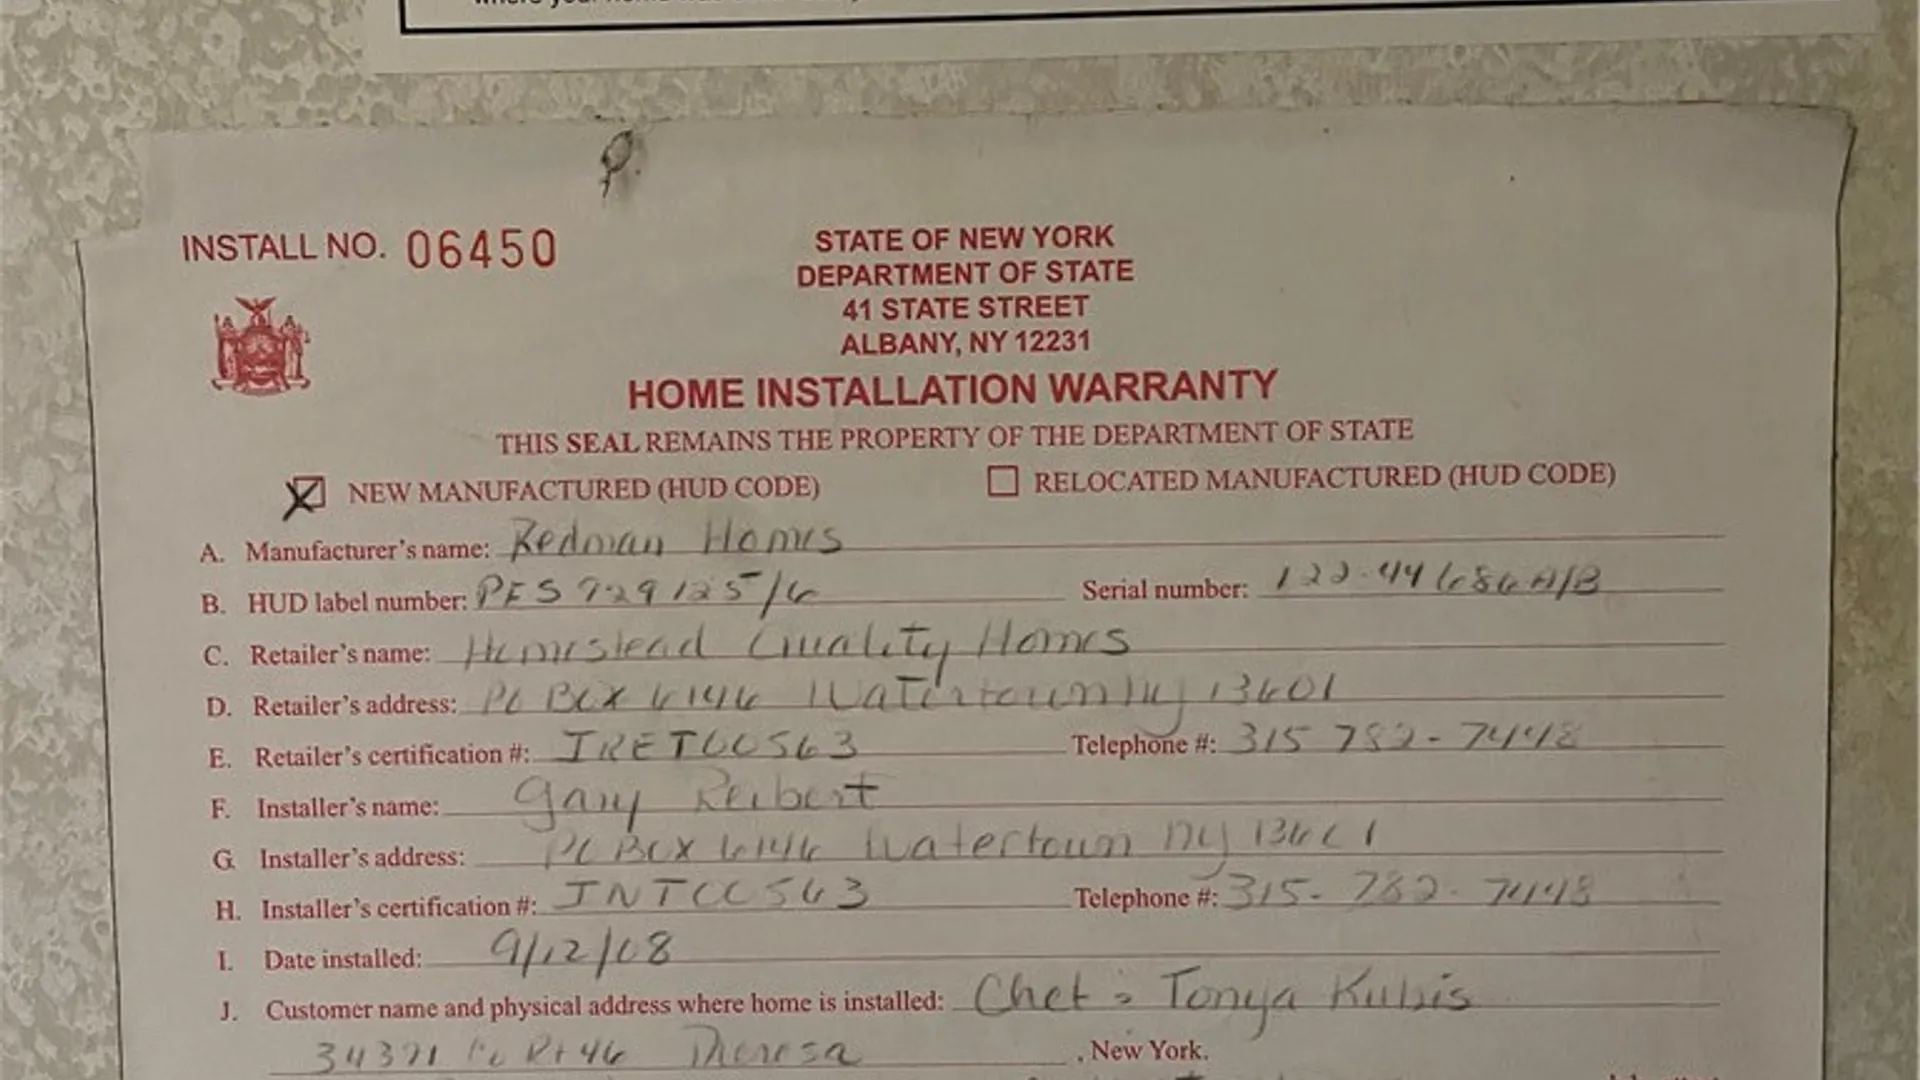 where your home was
INSTALL NO. 06450
STATE OF NEW YORK
DEPARTMENT OF STATE
41 STATE STREET
ALBANY, NY 12231
HOME INSTALLATION WARRANTY
THIS SEAL REMAINS THE PROPERTY OF THE DEPARTMENT OF STATE
NEW MANUFACTURED (HUD CODE) RELOCATED MANUFACTURED (HUD CODE)
A. Manufacturer's name: Redman Homes
B. HUD label number: Serial number:
C. Retailer's name: Homestead Quality Homes
D. Retailer's address: PO Box 6146 Watertown ny 13601
E. Retailer's certification #: IRET00563 Telephone #: 315 782-7448
F. Installer's name: Gary Reibert
G. Installer's address: PO Box 6146 Watertown ny 13601
H. Installer's certification #: INT00563 Telephone #: 315-782-7448
I. Date installed: 9/12/08
J. Customer name and physical address where home is installed: Chet : Tonya Kubis
34371 Co Rt 46 Theresa , New York.